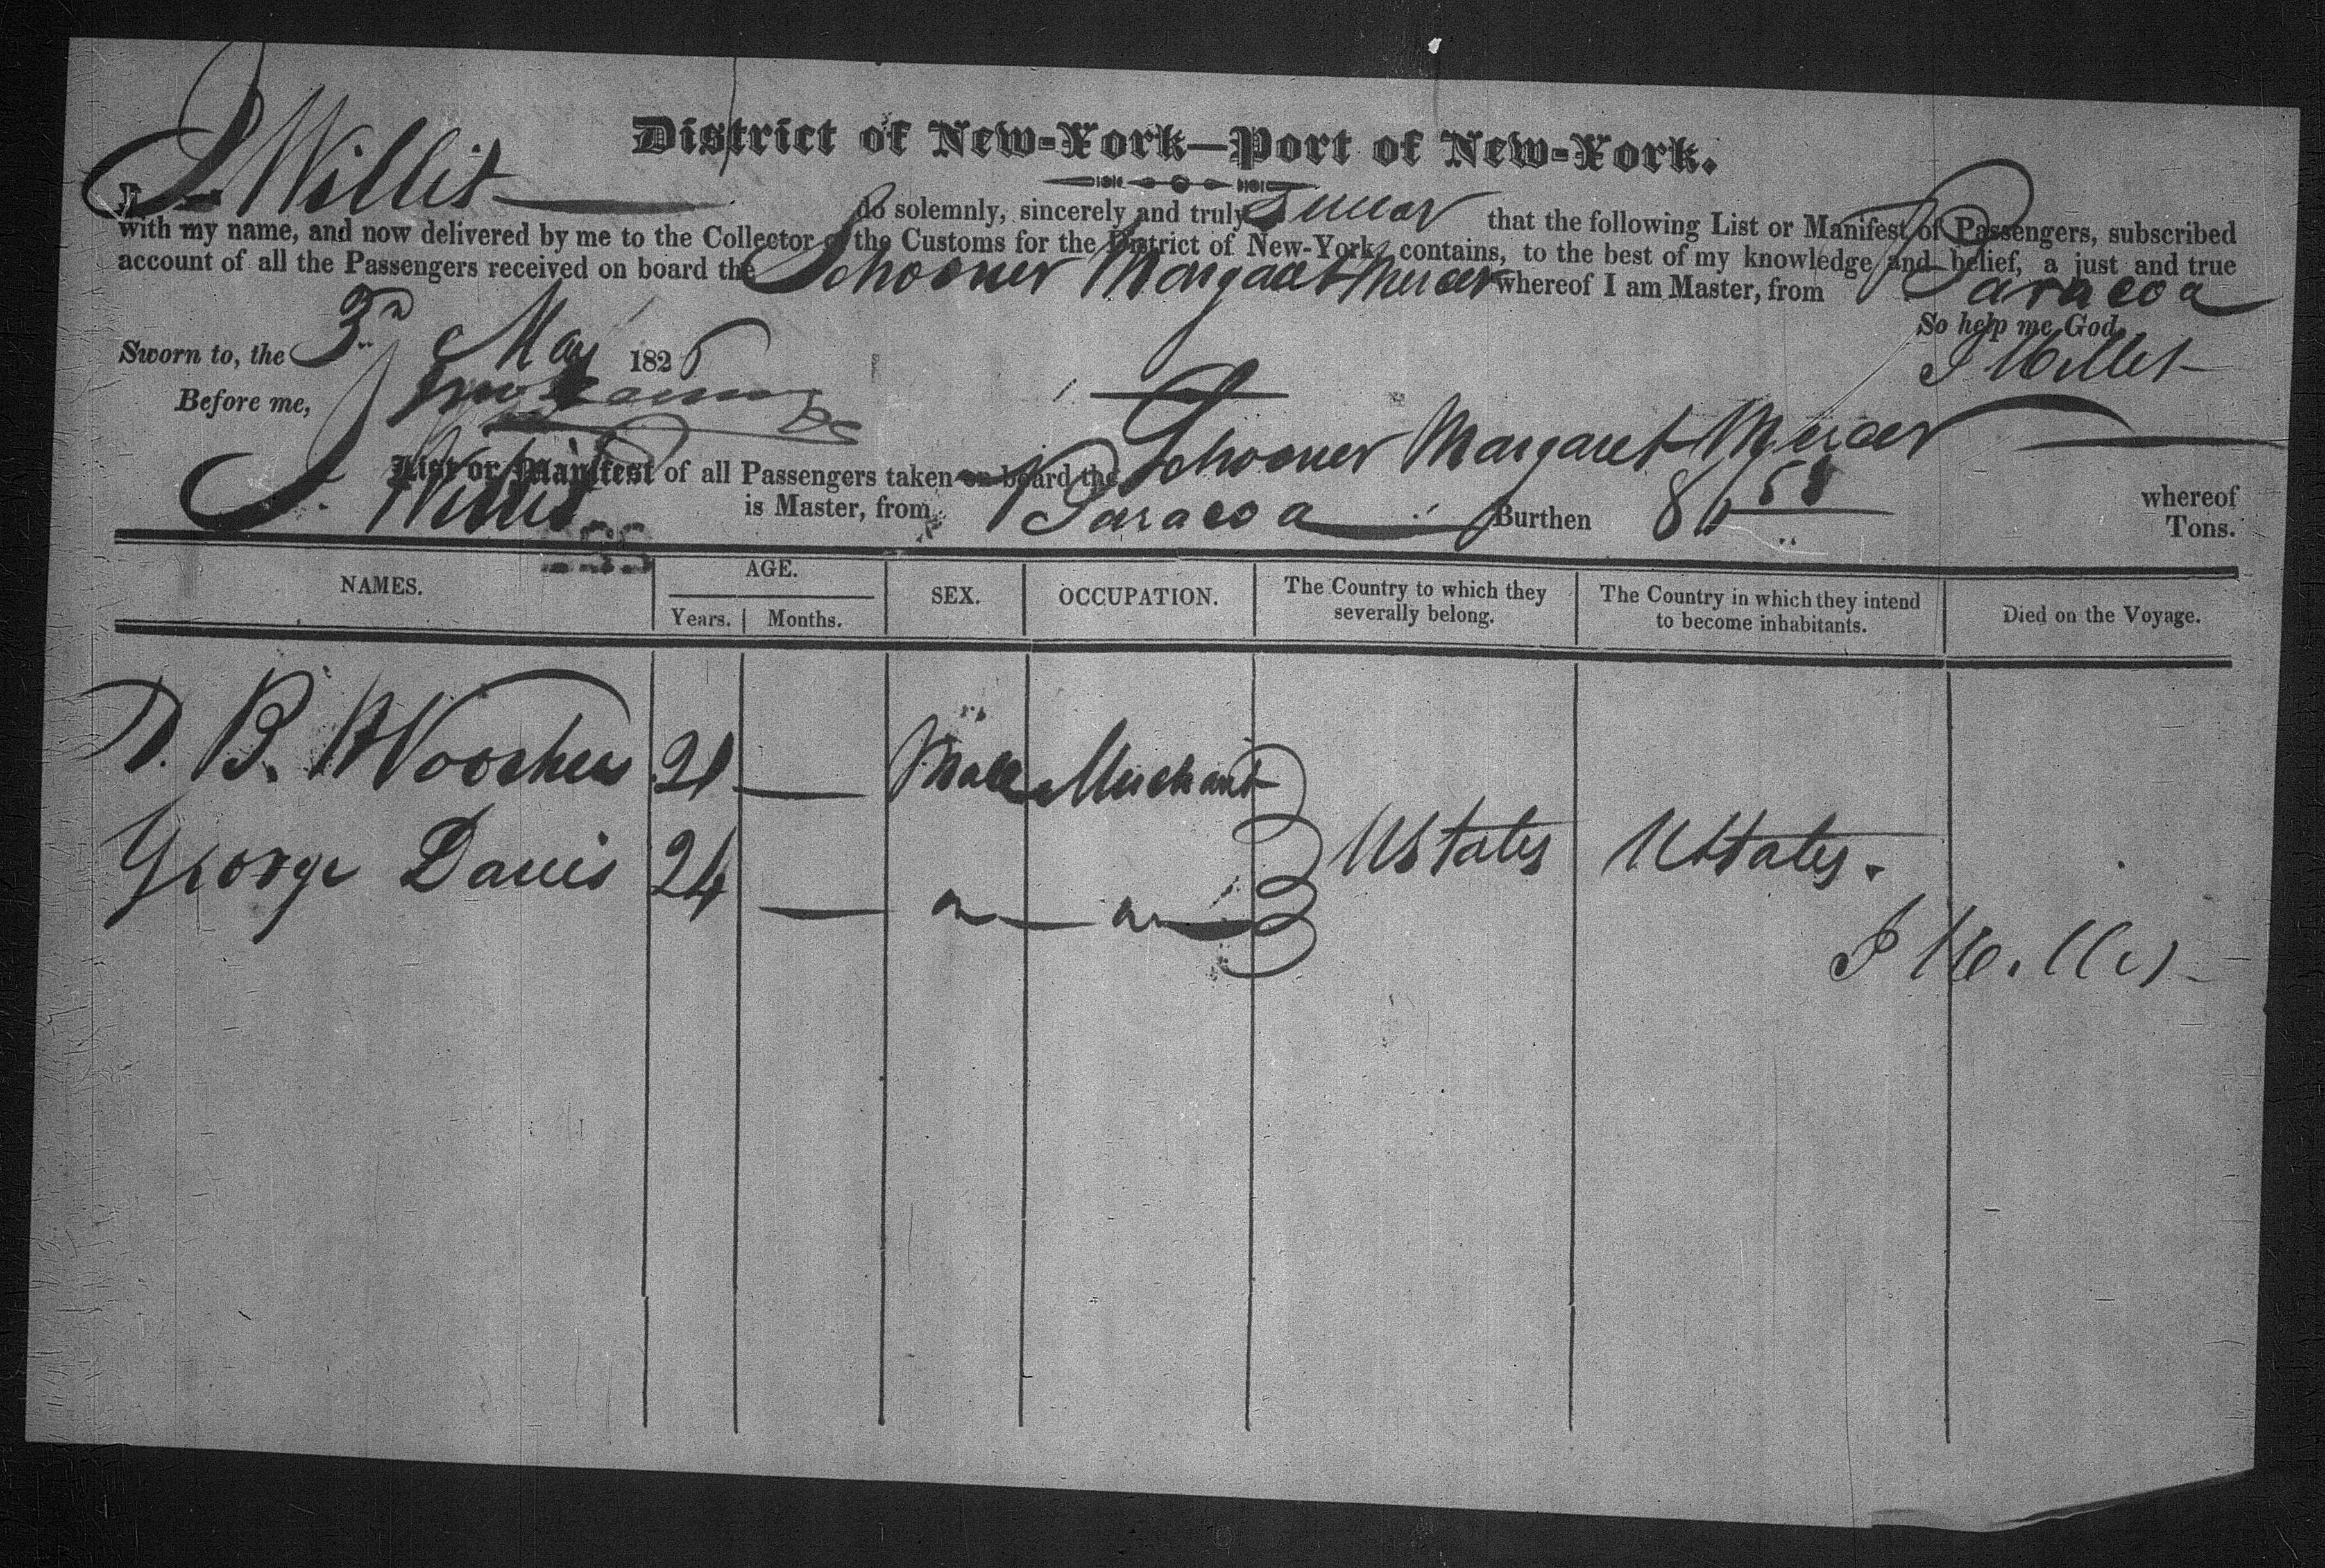 District of New-York—Port of New-York.
I J Willis do solemnly, sincerely and truly Swear that the following List or Manifest of Passengers, subscribed
with my name, and now delivered by me to the Collector of the Customs for the District of New-York, contains, to the best of my knowledge and belief, a just and true
account of all the Passengers received on board the Schooner Margaret Mercer whereof I am Master, from Baracoa
So help me God.
Sworn to, the 3d May 1826 J Willis
Before me,
List or Manifest of all Passengers taken on board the Schooner Margaret Mercer whereof
J. Willis is Master, from Baracoa Burthen Tons.
NAMES. AGE. SEX. OCCUPATION. The Country to which they severally belong. The Country in which they intend to become inhabitants. Died on the Voyage.
Years. Months.
D. B. 21 — Male Merchant
George Davis 24 — " " UStates UStates.
J Willis